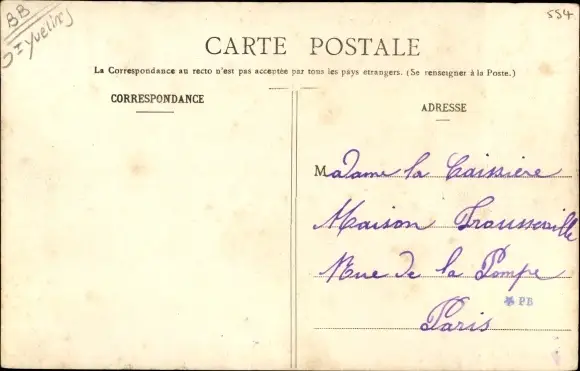 BB
Yvelines
554
CARTE POSTALE
La Correspondance au recto n'est pas acceptée par tous les pays étrangers. (Se renseigner à la Poste.)
CORRESPONDANCE
ADRESSE
Madame la Caissière
Maison Trousseville
Rue de la Pompe
PB
Paris